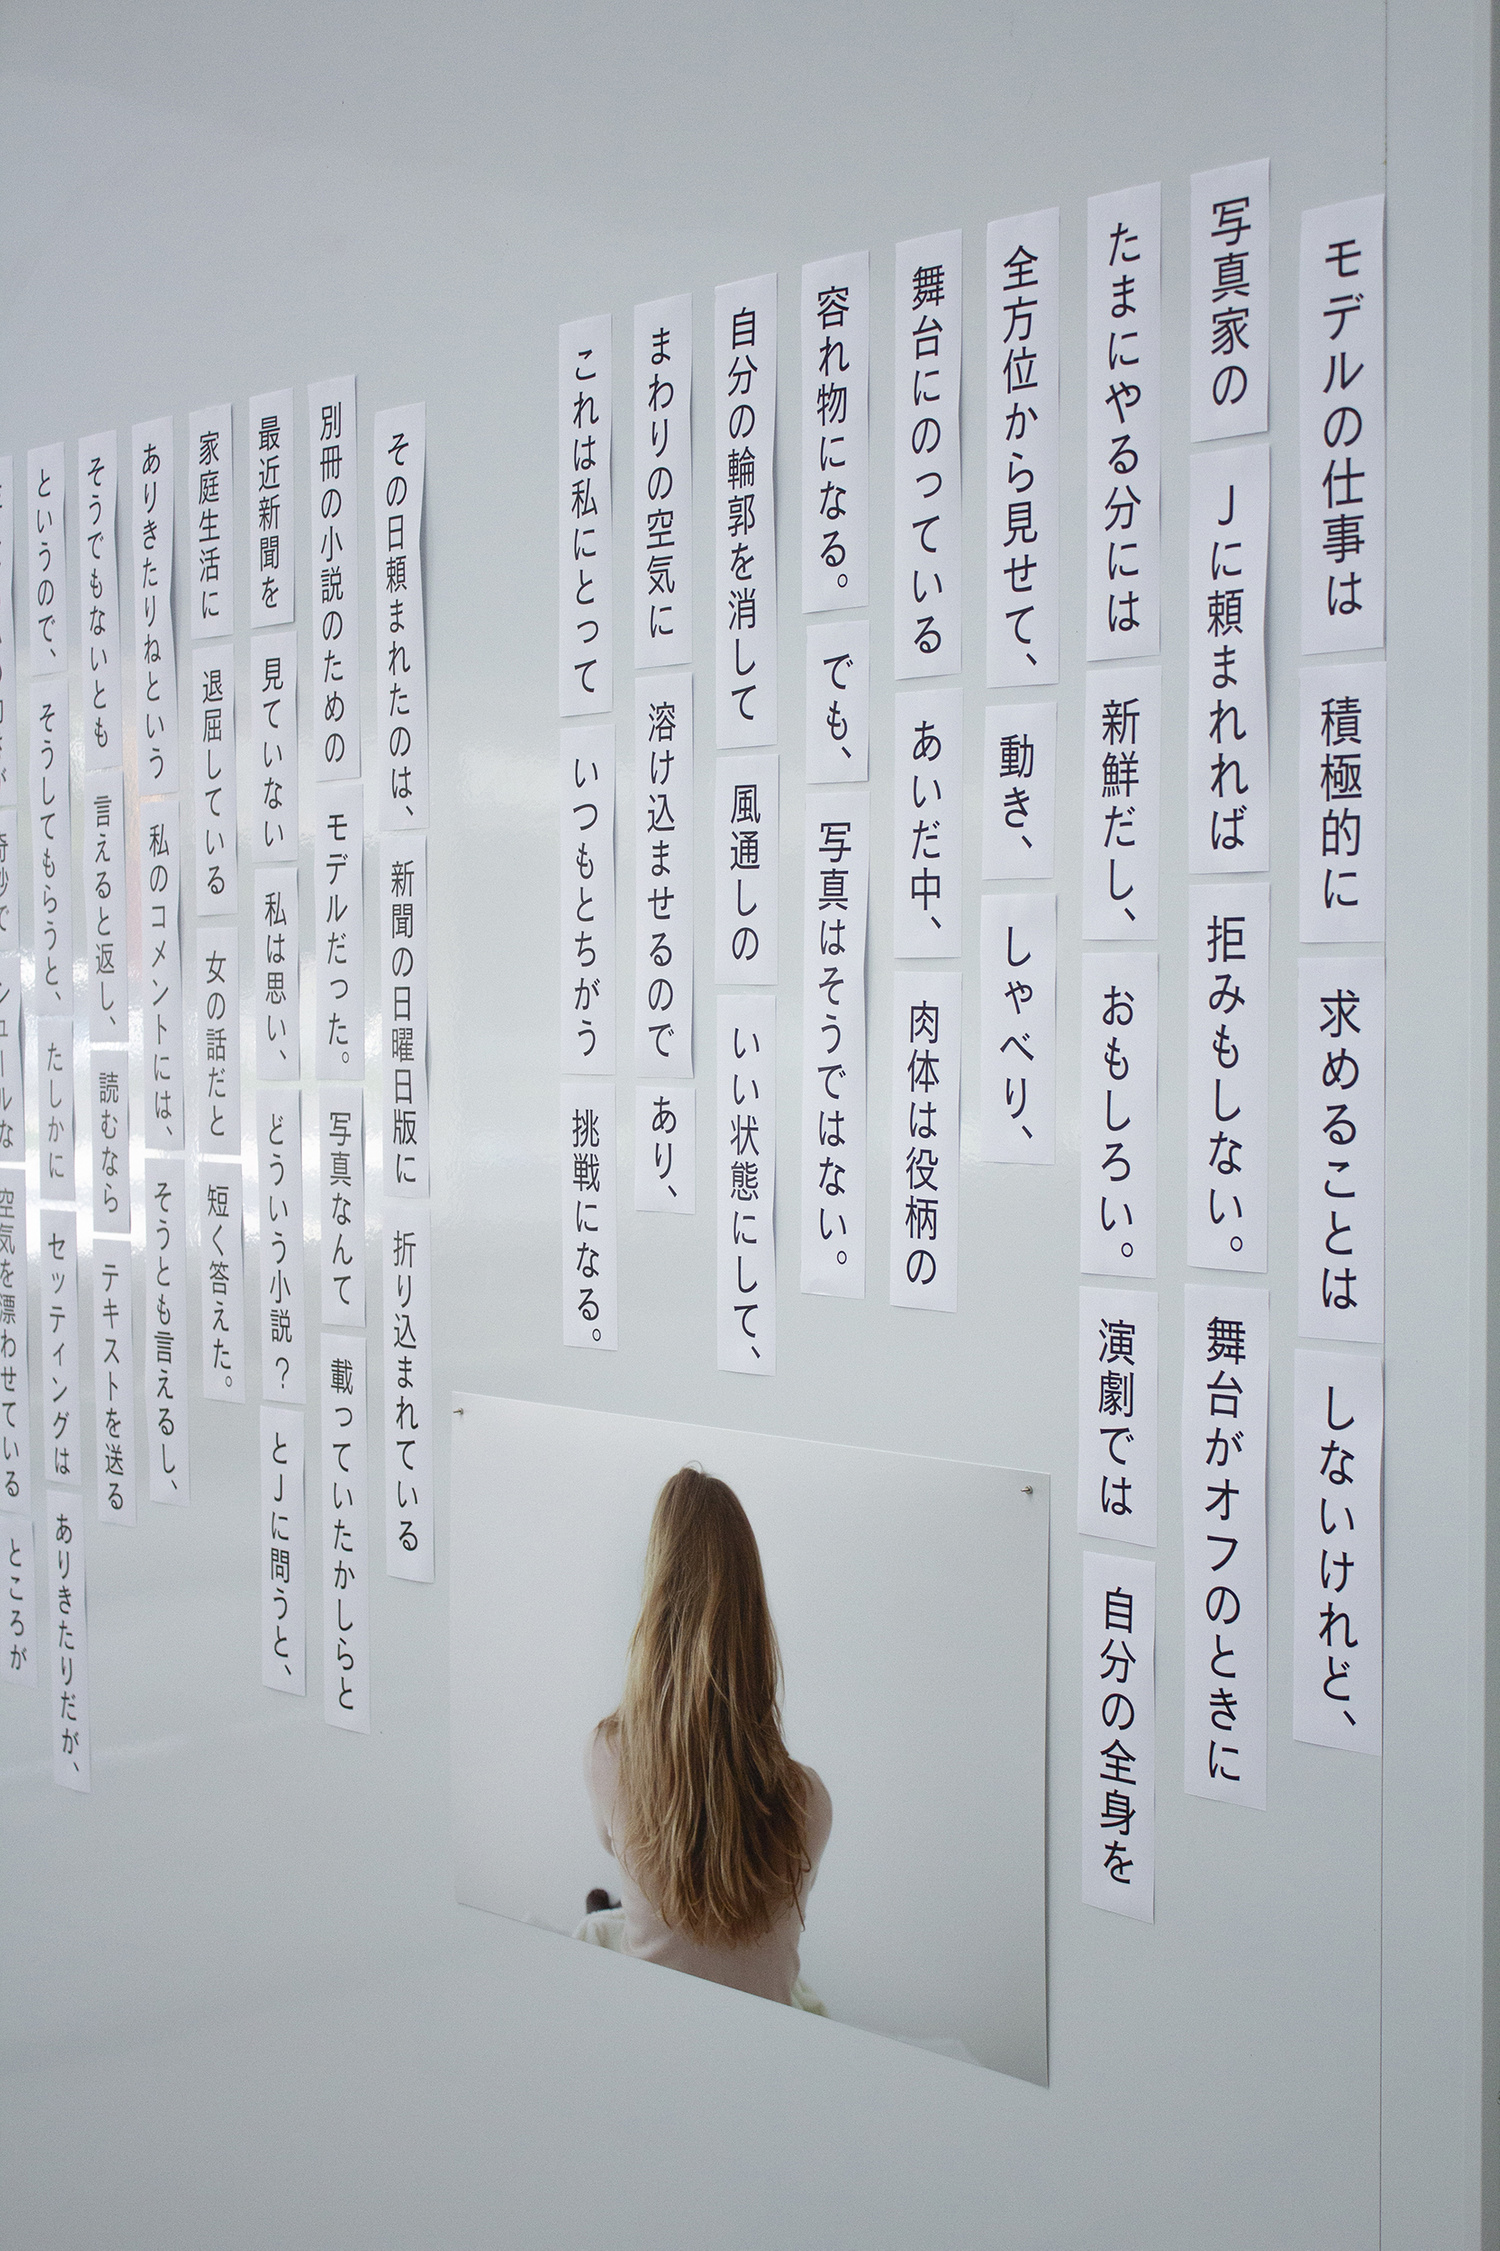 モデルの仕事は 積極的に 求めることは しないけれど、
写真家の Jに頼まれれば 拒みもしない。 舞台がオフのときに
たまにやる分には 新鮮だし、 おもしろい。 演劇では 自分の全身を
全方位から見せて、 動き、 しゃべり、
舞台にのっている あいだ中、 肉体は役柄の
容れ物になる。 でも、 写真はそうではない。
自分の輪郭を消して 風通しの いい状態にして、
まわりの空気に 溶け込ませるので あり、
これは私にとって いつもとちがう 挑戦になる。
その日頼まれたのは、 新聞の日曜日版に 折り込まれている
別冊の小説のための モデルだった。 写真なんて 載っていたかしらと
最近新聞を 見ていない 私は思い、 どういう小説？ とJに問うと、
家庭生活に 退屈している 女の話だと 短く答えた。
ありきたりねという 私のコメントには、 そうとも言えるし、
そうでもないとも 言えると返し、 読むなら テキストを送る
というので、 そうしてもらうと、 たしかに セッティングは ありきたりだが、
空気を漂わせている ところが